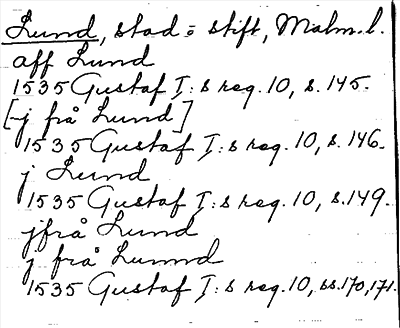 Lund, stad o stift, Malm.l.
aff Lund
1535 Gustaf I:s reg. 10, s. 145.
[-j frå Lund]
1535 Gustaf I:s reg. 10, s. 146.
j Lund
1535 Gustaf I:s reg. 10, s. 149.
jfrå Lund
j frå Lunnd
1535 Gustaf I:s reg. 10, ss. 170, 171.